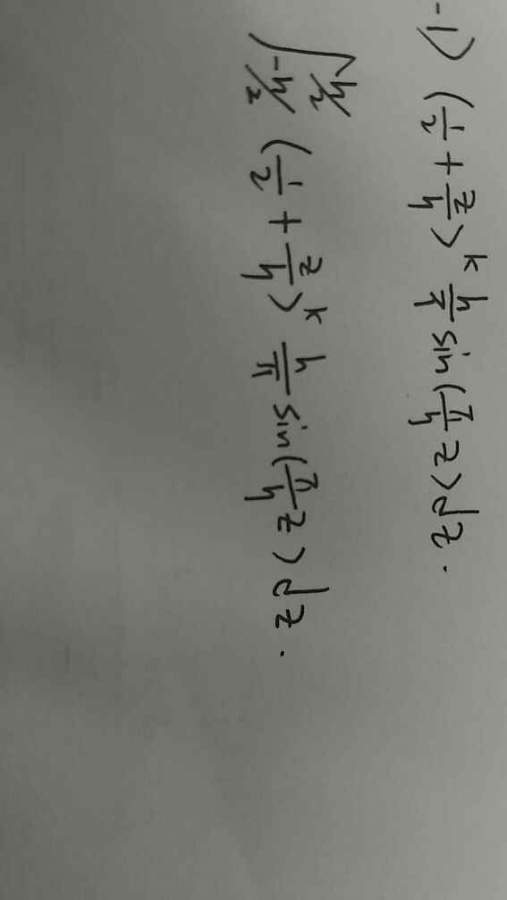 -1) (1/2 + z/h)^k h/π sin(π/h z) dz.
∫_{-h/2}^{h/2} (1/2 + z/h)^k h/π sin(π/h z) dz.